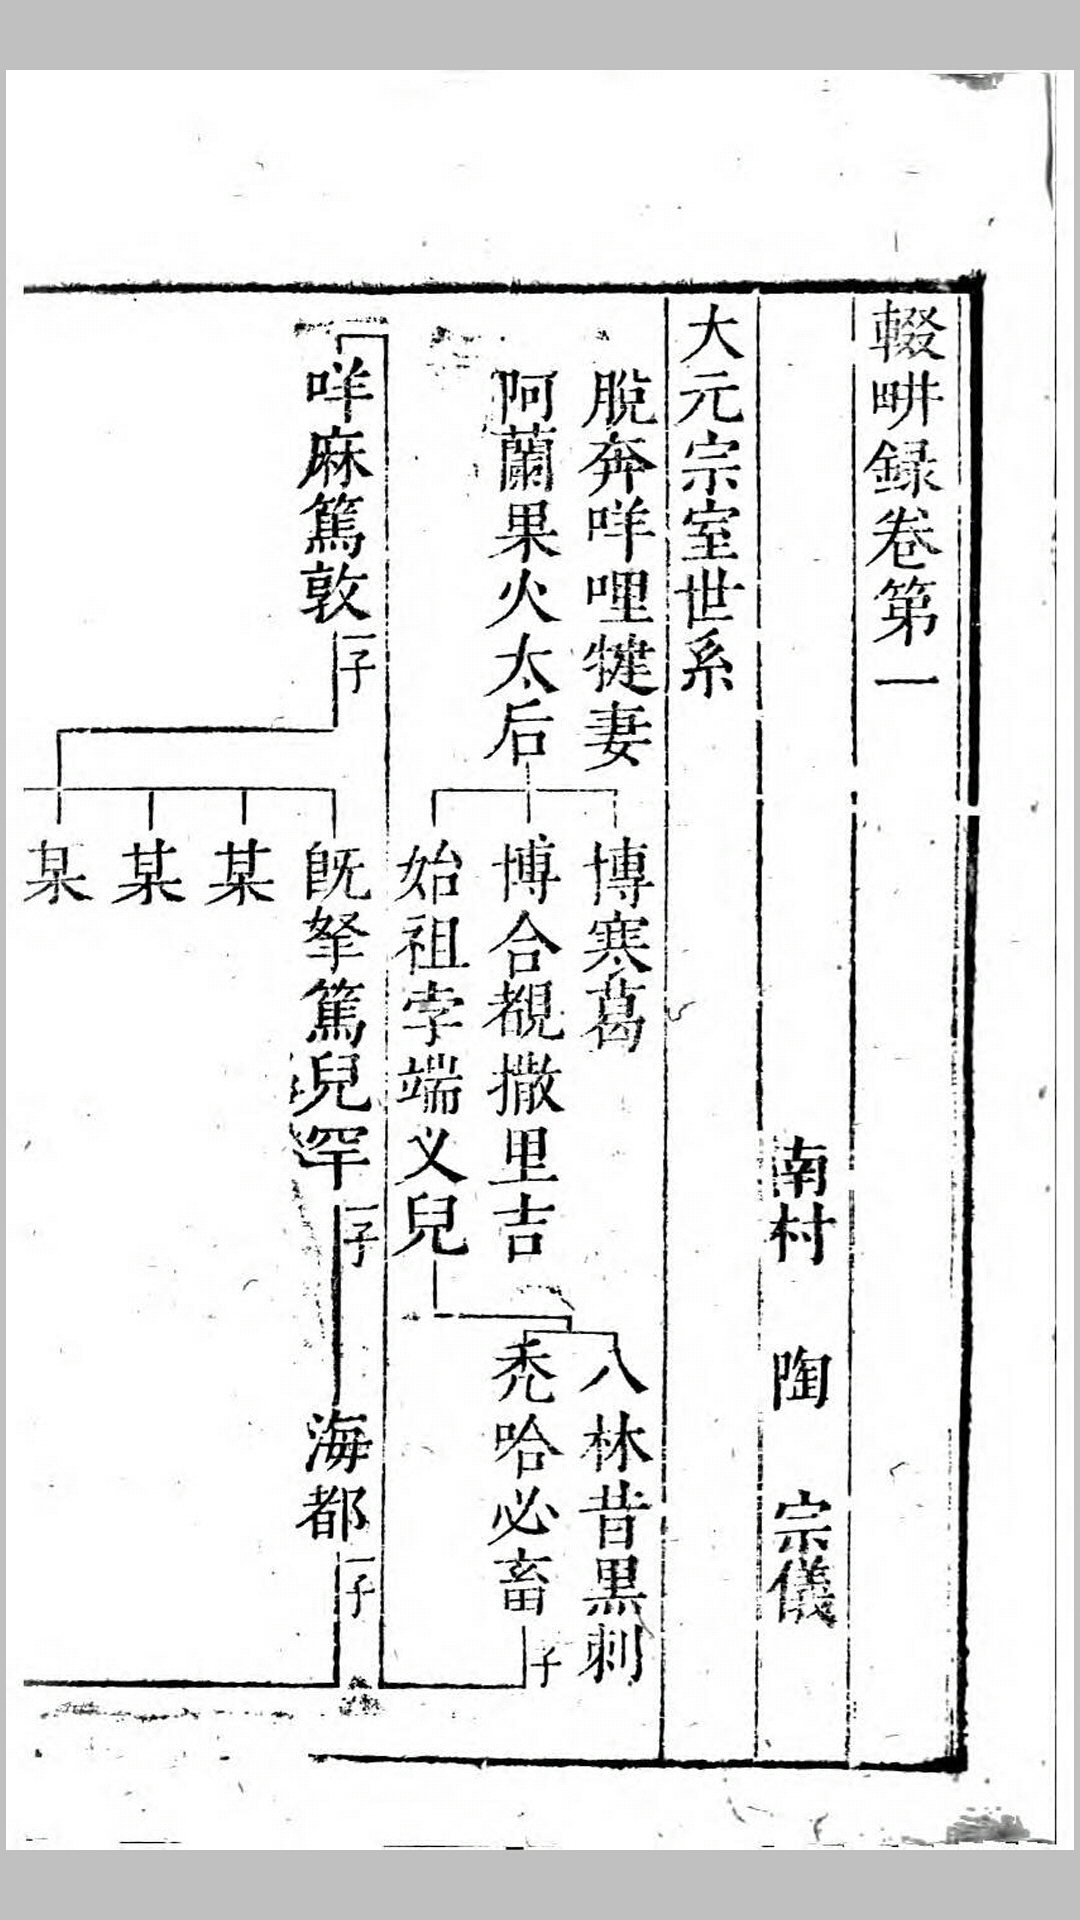 輟畊録卷第一
南村 陶 宗儀
大元宗室世系
脫奔咩哩犍妻
博寒葛
八林昔黒剌
阿蘭果火太后
博合覩撒里吉
禿哈必畜
子
始祖孛端义兒
咩麻篤敦
一子
旣拏篤兒罕
一子
海都
一子
某
某
某